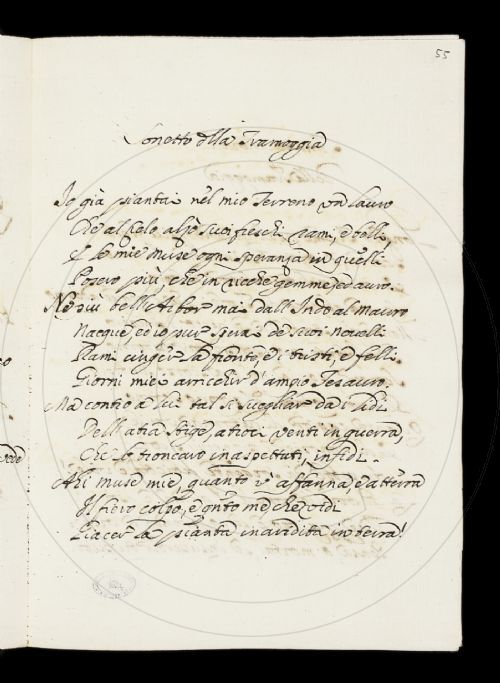 55
Sonetto della Tramoggia
Io già piantai nel mio Terreno un lauro
Che al Cielo alzò suoi freschi rami, e belli,
E le mie Muse ogni speranza in quelli
Posero più, che in ricche gemme, ed auro.
Nè più bell'Arbor mai dall'Indo al Mauro
Nacque, ed io pur sperai de suoi novelli
Rami cinger la fronte, e i tristi, e felli
Giorni miei arricchir d'ampio Tesauro.
Ma contro a lui tal si svegliar da i lidi
Dell'atra Stige, atroci venti in guerra,
Che lo troncaro inaspettati, infidi.
Ahi muse mie, quanto v'affanna, e atterra
Il fiero colpo, e qnto me che vidi
Giacer la pianta inaridita in terra!